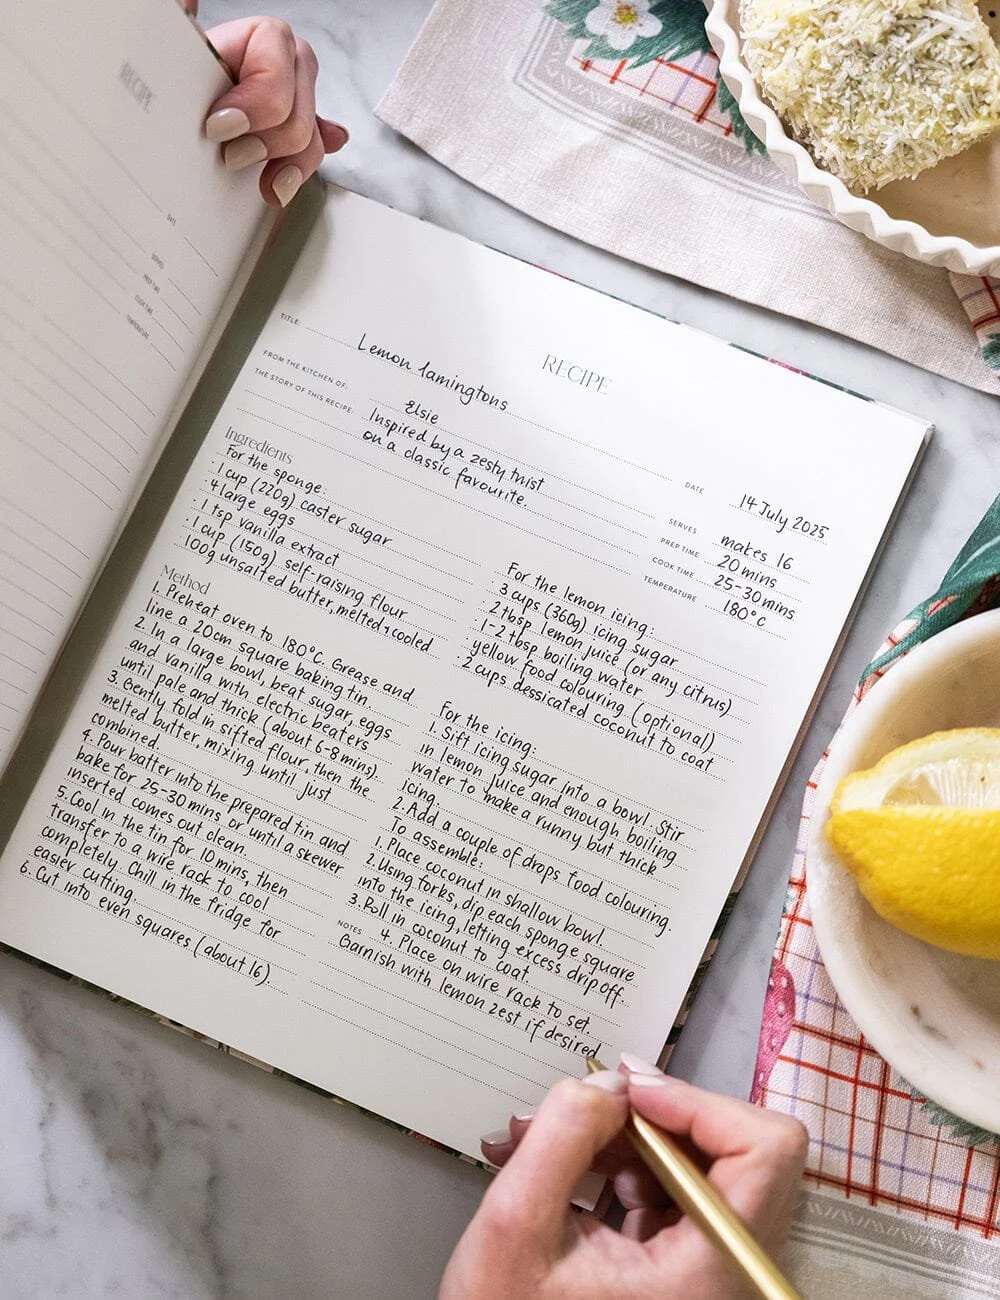 RECIPE
DATE
SERVES
PREP TIME
COOK TIME
TEMPERATURE
RECIPE
TITLE: Lemon lamingtons
FROM THE KITCHEN OF: Elsie
THE STORY OF THIS RECIPE: Inspired by a zesty twist
on a classic favourite.
DATE 14 July 2025
SERVES makes 16
PREP TIME 20 mins
COOK TIME 25-30 mins
TEMPERATURE 180°C
Ingredients
For the sponge:
· 1 cup (220g) caster sugar
· 4 large eggs
· 1 tsp vanilla extract
· 1 cup (150g) self-raising flour
100g unsalted butter, melted + cooled
For the lemon icing:
· 3 cups (360g) icing sugar
· 2 tbsp lemon juice (or any citrus)
· 1-2 tbsp boiling water
· yellow food colouring (optional)
· 2 cups dessicated coconut to coat
Method
1. Preheat oven to 180°C. Grease and
line a 20cm square baking tin.
2. In a large bowl, beat sugar, eggs
and vanilla with electric beaters
until pale and thick (about 6-8 mins).
3. Gently fold in sifted flour, then the
melted butter, mixing until just
combined.
4. Pour batter into the prepared tin and
bake for 25-30 mins or until a skewer
inserted comes out clean.
5. Cool in the tin for 10 mins, then
transfer to a wire rack to cool
completely. Chill in the fridge for
easier cutting.
6. Cut into even squares (about 16).
For the icing:
1. Sift icing sugar into a bowl. Stir
in lemon juice and enough boiling
water to make a runny but thick
icing.
2. Add a couple of drops food colouring.
To assemble:
1. Place coconut in shallow bowl.
2. Using forks, dip each sponge square
into the icing, letting excess drip off.
3. Roll in coconut to coat.
4. Place on wire rack to set.
NOTES
Garnish with lemon zest if desired